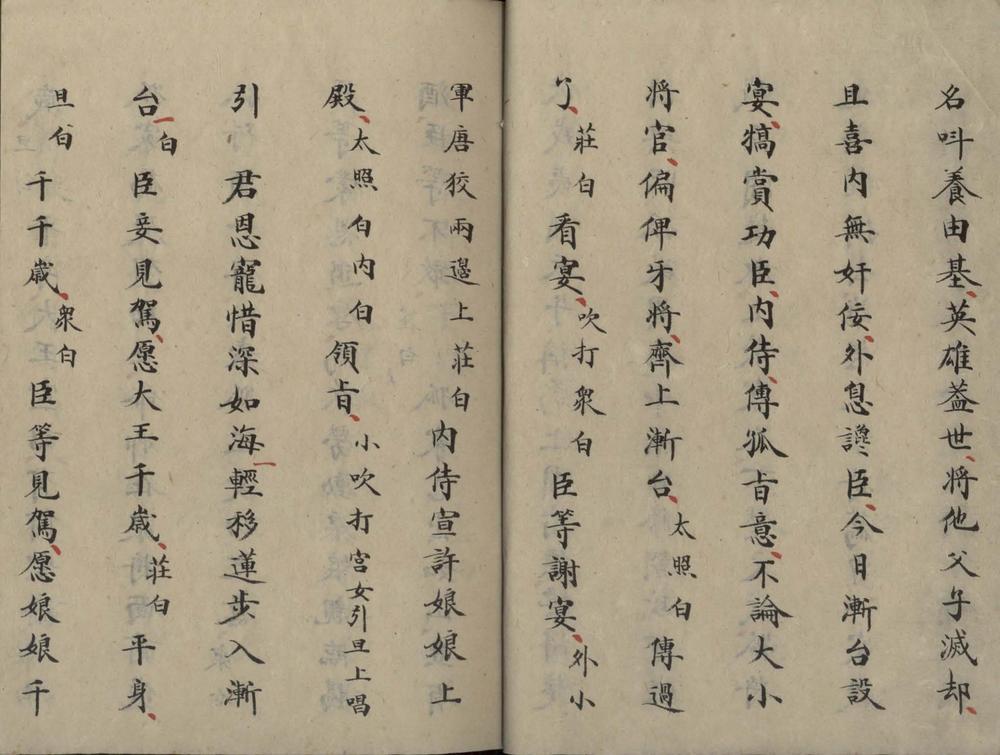 名呌養由基、英雄葢世、将他父子滅却、
且喜内無奸佞、外息讒臣、今日漸台設
宴、犒賞功臣、内侍、傳孤旨意、不論大小
将官、偏俾牙将、齊上漸台、太照白傳過
了、莊白看宴、吹打衆白臣等謝宴、外小
軍唐狡兩邉上莊白内侍宣許娘娘上
殿、太照白内白領旨、小吹打宮女引旦上唱
引君恩寵惜深如海輕移蓮步入漸
台白臣妾見駕、愿大王千歲、莊白平身、
旦白千千歲、衆白臣等見駕、愿娘娘千